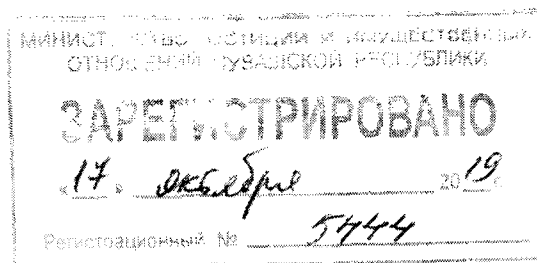 МИНИСТЕРСТВО ЮСТИЦИИ И ИМУЩЕСТВЕННЫХ
ОТНОШЕНИЙ ЧУВАШСКОЙ РЕСПУБЛИКИ
ЗАРЕГИСТРИРОВАНО
«17» октября 2019 г.
Регистрационный № 5444